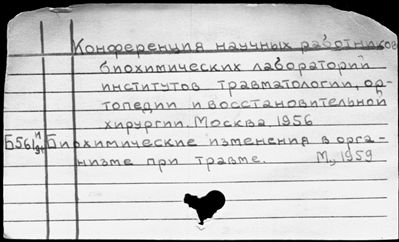 Конференция научных работников
биохимических лабораторий
институтов травматологии, ор-
топедии и восстановительной
хирургии. Москва 1956
Б561 Биохимические изменения в орга-
низме при травме. М, 1959